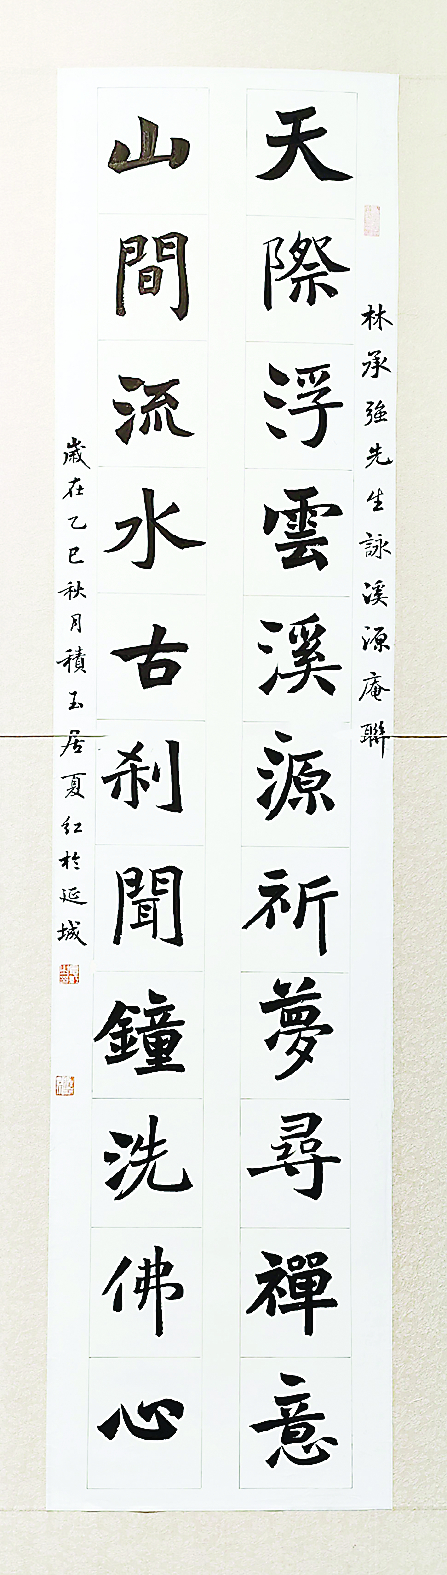 林承強先生詠溪源庵聯
天際浮雲溪源祈夢尋禪意
山間流水古刹聞鐘洗佛心
歲在乙巳秋月積玉居夏紅於延城